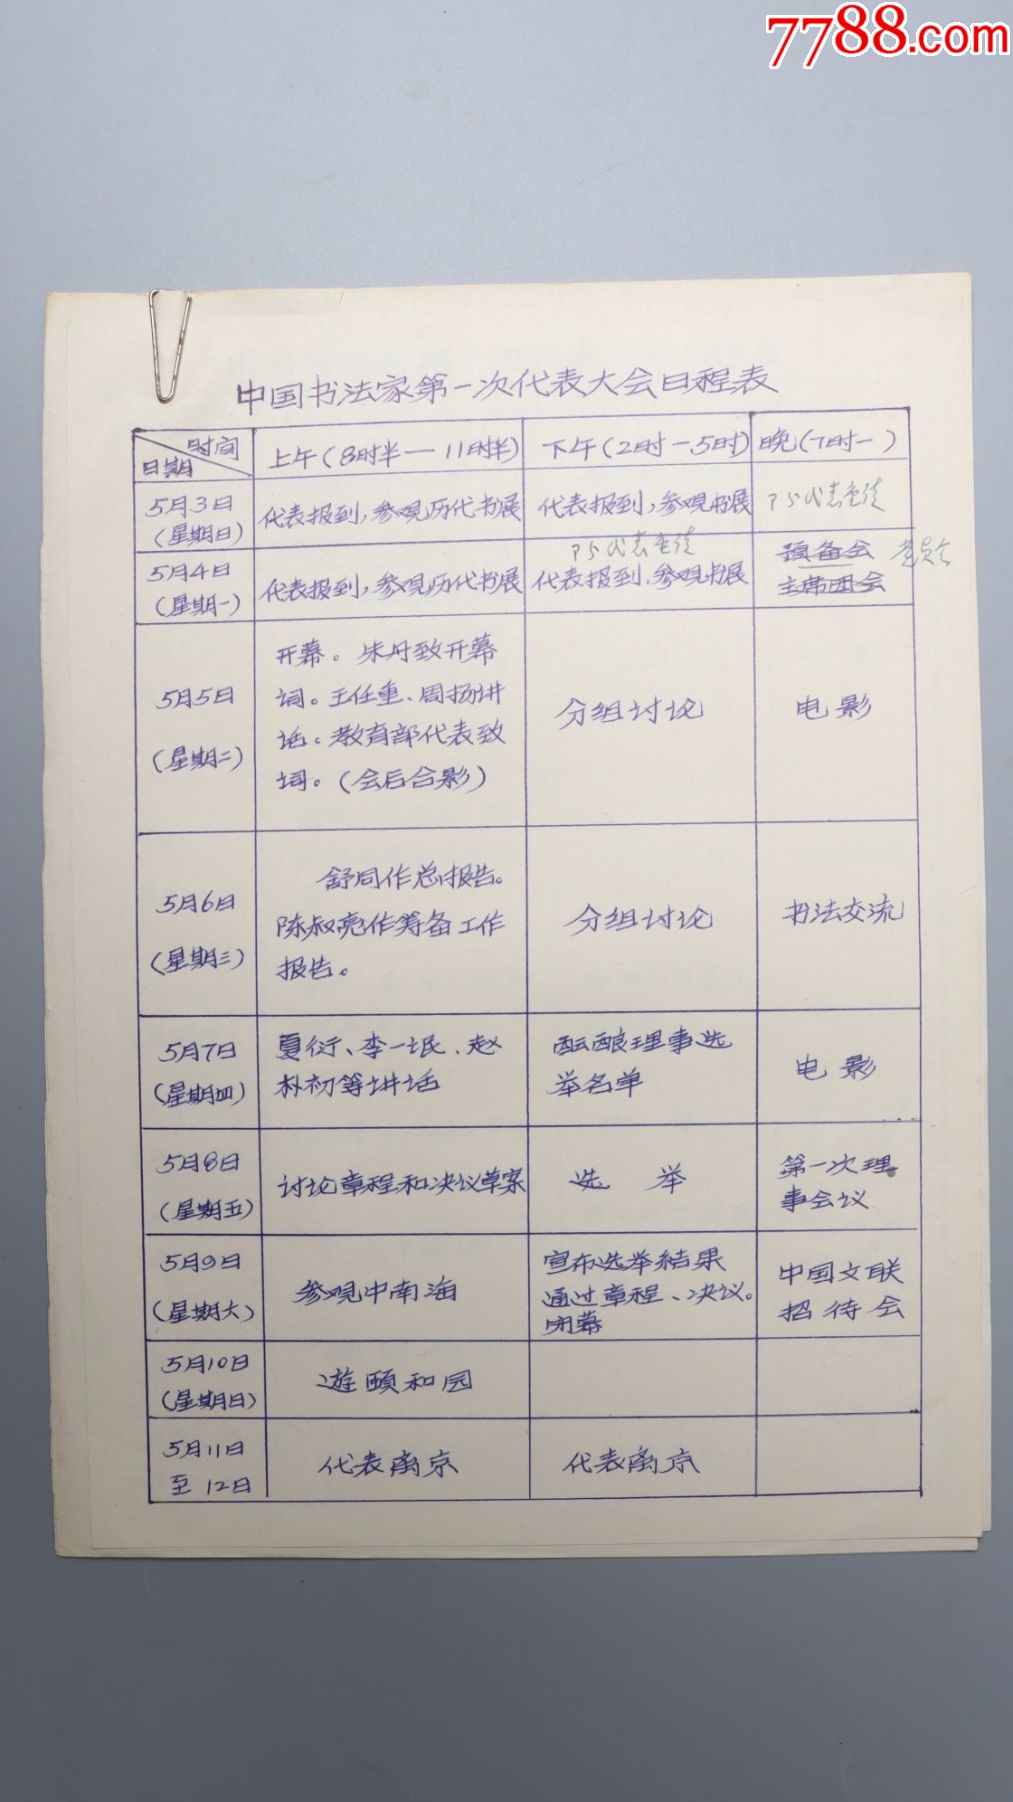 7788.com
中国书法家第一次代表大会日程表
时间
日期
上午(8时半—11时半)
下午(2时—5时)
晚(7时—)
5月3日
(星期日)
代表报到,参观历代书展
代表报到,参观书展
5月4日
(星期一)
代表报到,参观历代书展
代表报到,参观书展
预备会
主席团会
5月5日
(星期二)
开幕。朱丹致开幕
词。王任重、周扬讲
话。教育部代表致
词。(会后合影)
分组讨论
电影
5月6日
(星期三)
舒同作总报告。
陈叔亮作筹备工作
报告。
分组讨论
书法交流
5月7日
(星期四)
夏衍、李一氓、赵
朴初等讲话
酝酿理事选
举名单
电影
5月8日
(星期五)
讨论章程和决议草案
选举
第一次理
事会议
5月9日
(星期六)
参观中南海
宣布选举结果
通过章程、决议。
闭幕
中国文联
招待会
5月10日
(星期日)
遊颐和园
5月11日
至12日
代表离京
代表离京